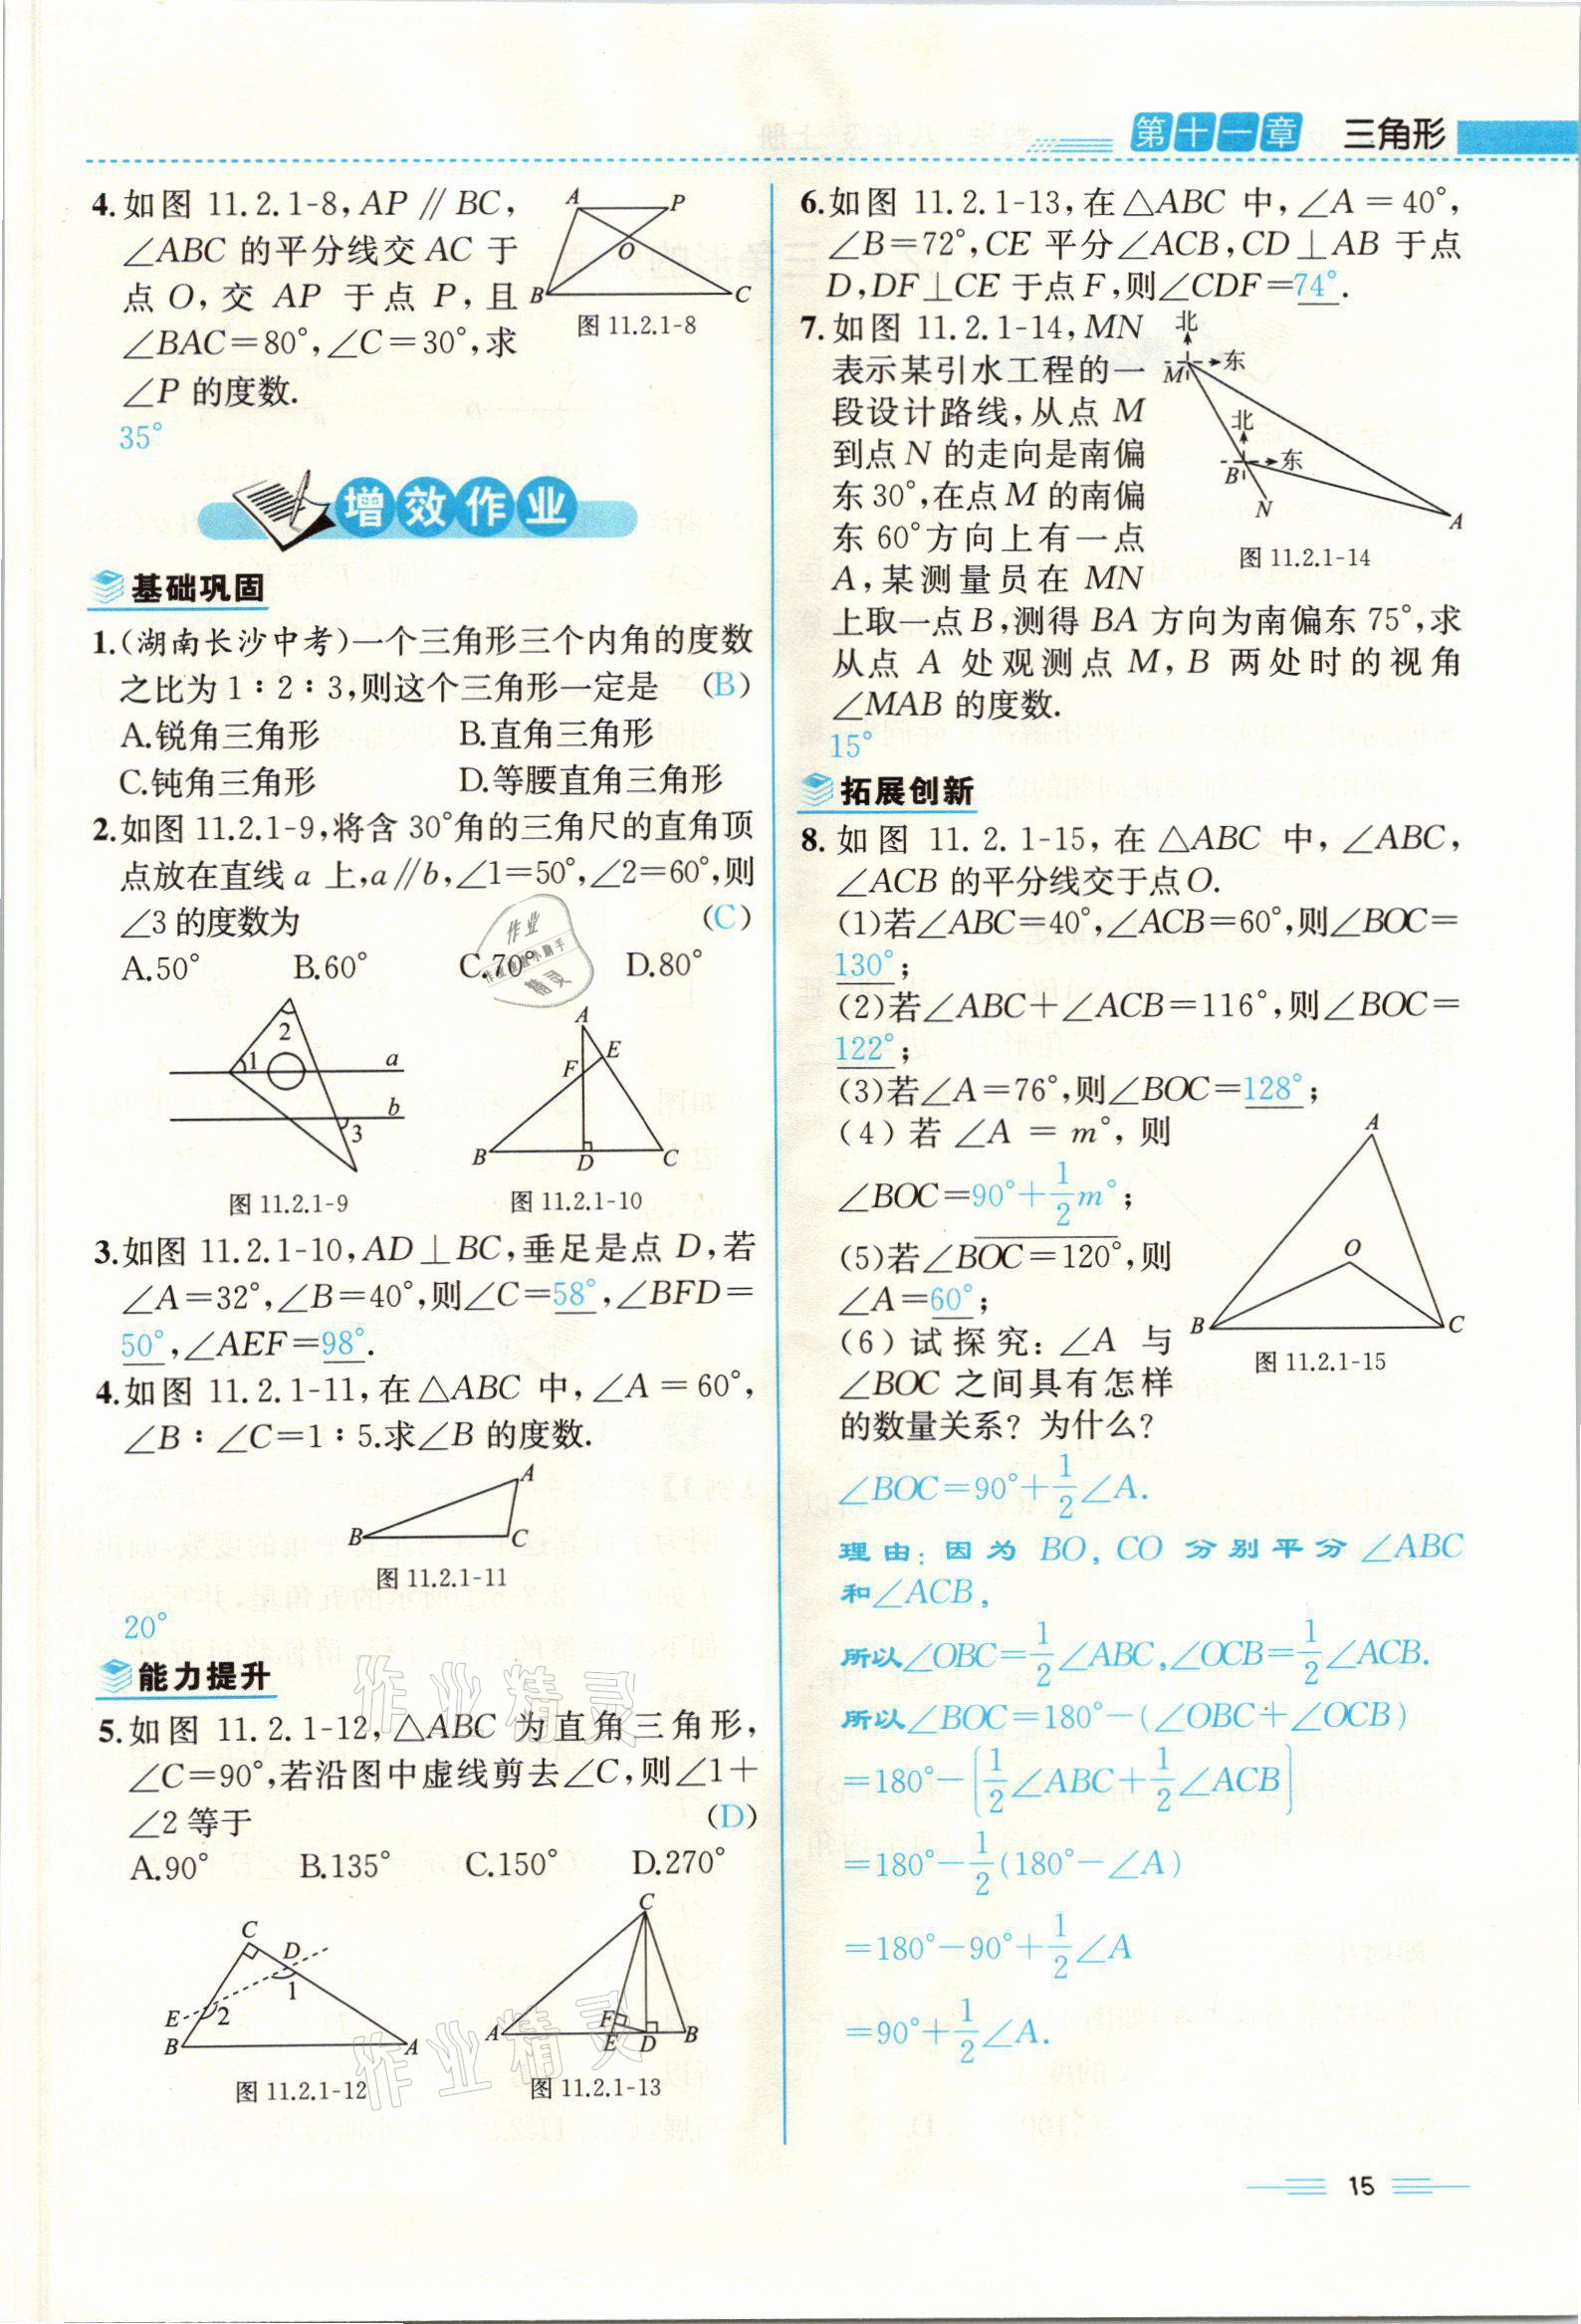 第十一章 三角形
4.如图 11.2.1-8,AP∥BC,
∠ABC 的平分线交 AC 于
点 O,交 AP 于点 P,且
∠BAC=80°,∠C=30°,求
∠P 的度数.
35°
A
P
O
B
C
图 11.2.1-8
增效作业
基础巩固
1.(湖南长沙中考)一个三角形三个内角的度数
之比为 1∶2∶3,则这个三角形一定是 (B)
A.锐角三角形 B.直角三角形
C.钝角三角形 D.等腰直角三角形
2.如图 11.2.1-9,将含 30°角的三角尺的直角顶
点放在直线 a 上,a∥b,∠1=50°,∠2=60°,则
∠3 的度数为 (C)
A.50° B.60° C.70° D.80°
2
1
a
b
3
图 11.2.1-9
A
E
F
B
D
C
图 11.2.1-10
3.如图 11.2.1-10,AD⊥BC,垂足是点 D,若
∠A=32°,∠B=40°,则∠C=58°,∠BFD=
50°,∠AEF=98°.
4.如图 11.2.1-11,在△ABC 中,∠A=60°,
∠B∶∠C=1∶5.求∠B 的度数.
A
B
C
图 11.2.1-11
20°
能力提升
5.如图 11.2.1-12,△ABC 为直角三角形,
∠C=90°,若沿图中虚线剪去∠C,则∠1+
∠2 等于 (D)
A.90° B.135° C.150° D.270°
C
D
1
E
2
B
A
图 11.2.1-12
C
F
A
E
D
B
图 11.2.1-13
作业精灵
作业精灵
6.如图 11.2.1-13,在△ABC 中,∠A=40°,
∠B=72°,CE 平分∠ACB,CD⊥AB 于点
D,DF⊥CE 于点 F,则∠CDF=74°.
7.如图 11.2.1-14,MN
表示某引水工程的一
段设计路线,从点 M
到点 N 的走向是南偏
东 30°,在点 M 的南偏
东 60°方向上有一点
A,某测量员在 MN
上取一点 B,测得 BA 方向为南偏东 75°,求
从点 A 处观测点 M,B 两处时的视角
∠MAB 的度数.
15°
北
东
M
北
东
B
N
A
图 11.2.1-14
拓展创新
8.如图 11.2.1-15,在△ABC 中,∠ABC,
∠ACB 的平分线交于点 O.
(1)若∠ABC=40°,∠ACB=60°,则∠BOC=
130°;
(2)若∠ABC+∠ACB=116°,则∠BOC=
122°;
(3)若∠A=76°,则∠BOC=128°;
(4)若∠A=m°,则
∠BOC=90°+1/2m°;
(5)若∠BOC=120°,则
∠A=60°;
(6)试探究:∠A 与
∠BOC 之间具有怎样
的数量关系?为什么?
A
O
B
C
图 11.2.1-15
∠BOC=90°+1/2∠A.
理由:因为 BO,CO 分别平分∠ABC
和∠ACB,
所以∠OBC=1/2∠ABC,∠OCB=1/2∠ACB.
所以∠BOC=180°-(∠OBC+∠OCB)
=180°-[1/2∠ABC+1/2∠ACB]
=180°-1/2(180°-∠A)
=180°-90°+1/2∠A
=90°+1/2∠A.
15